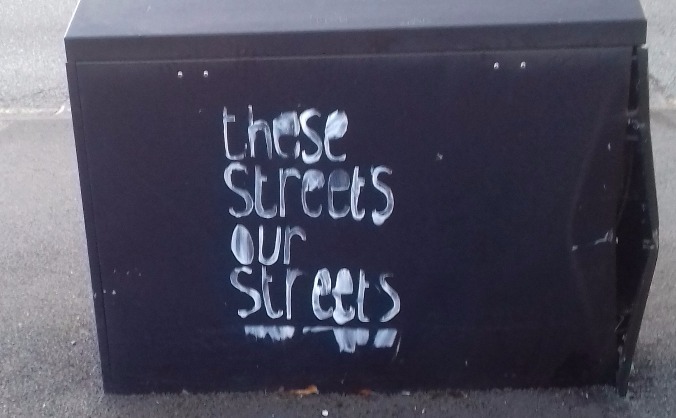 these
streets
our
streets